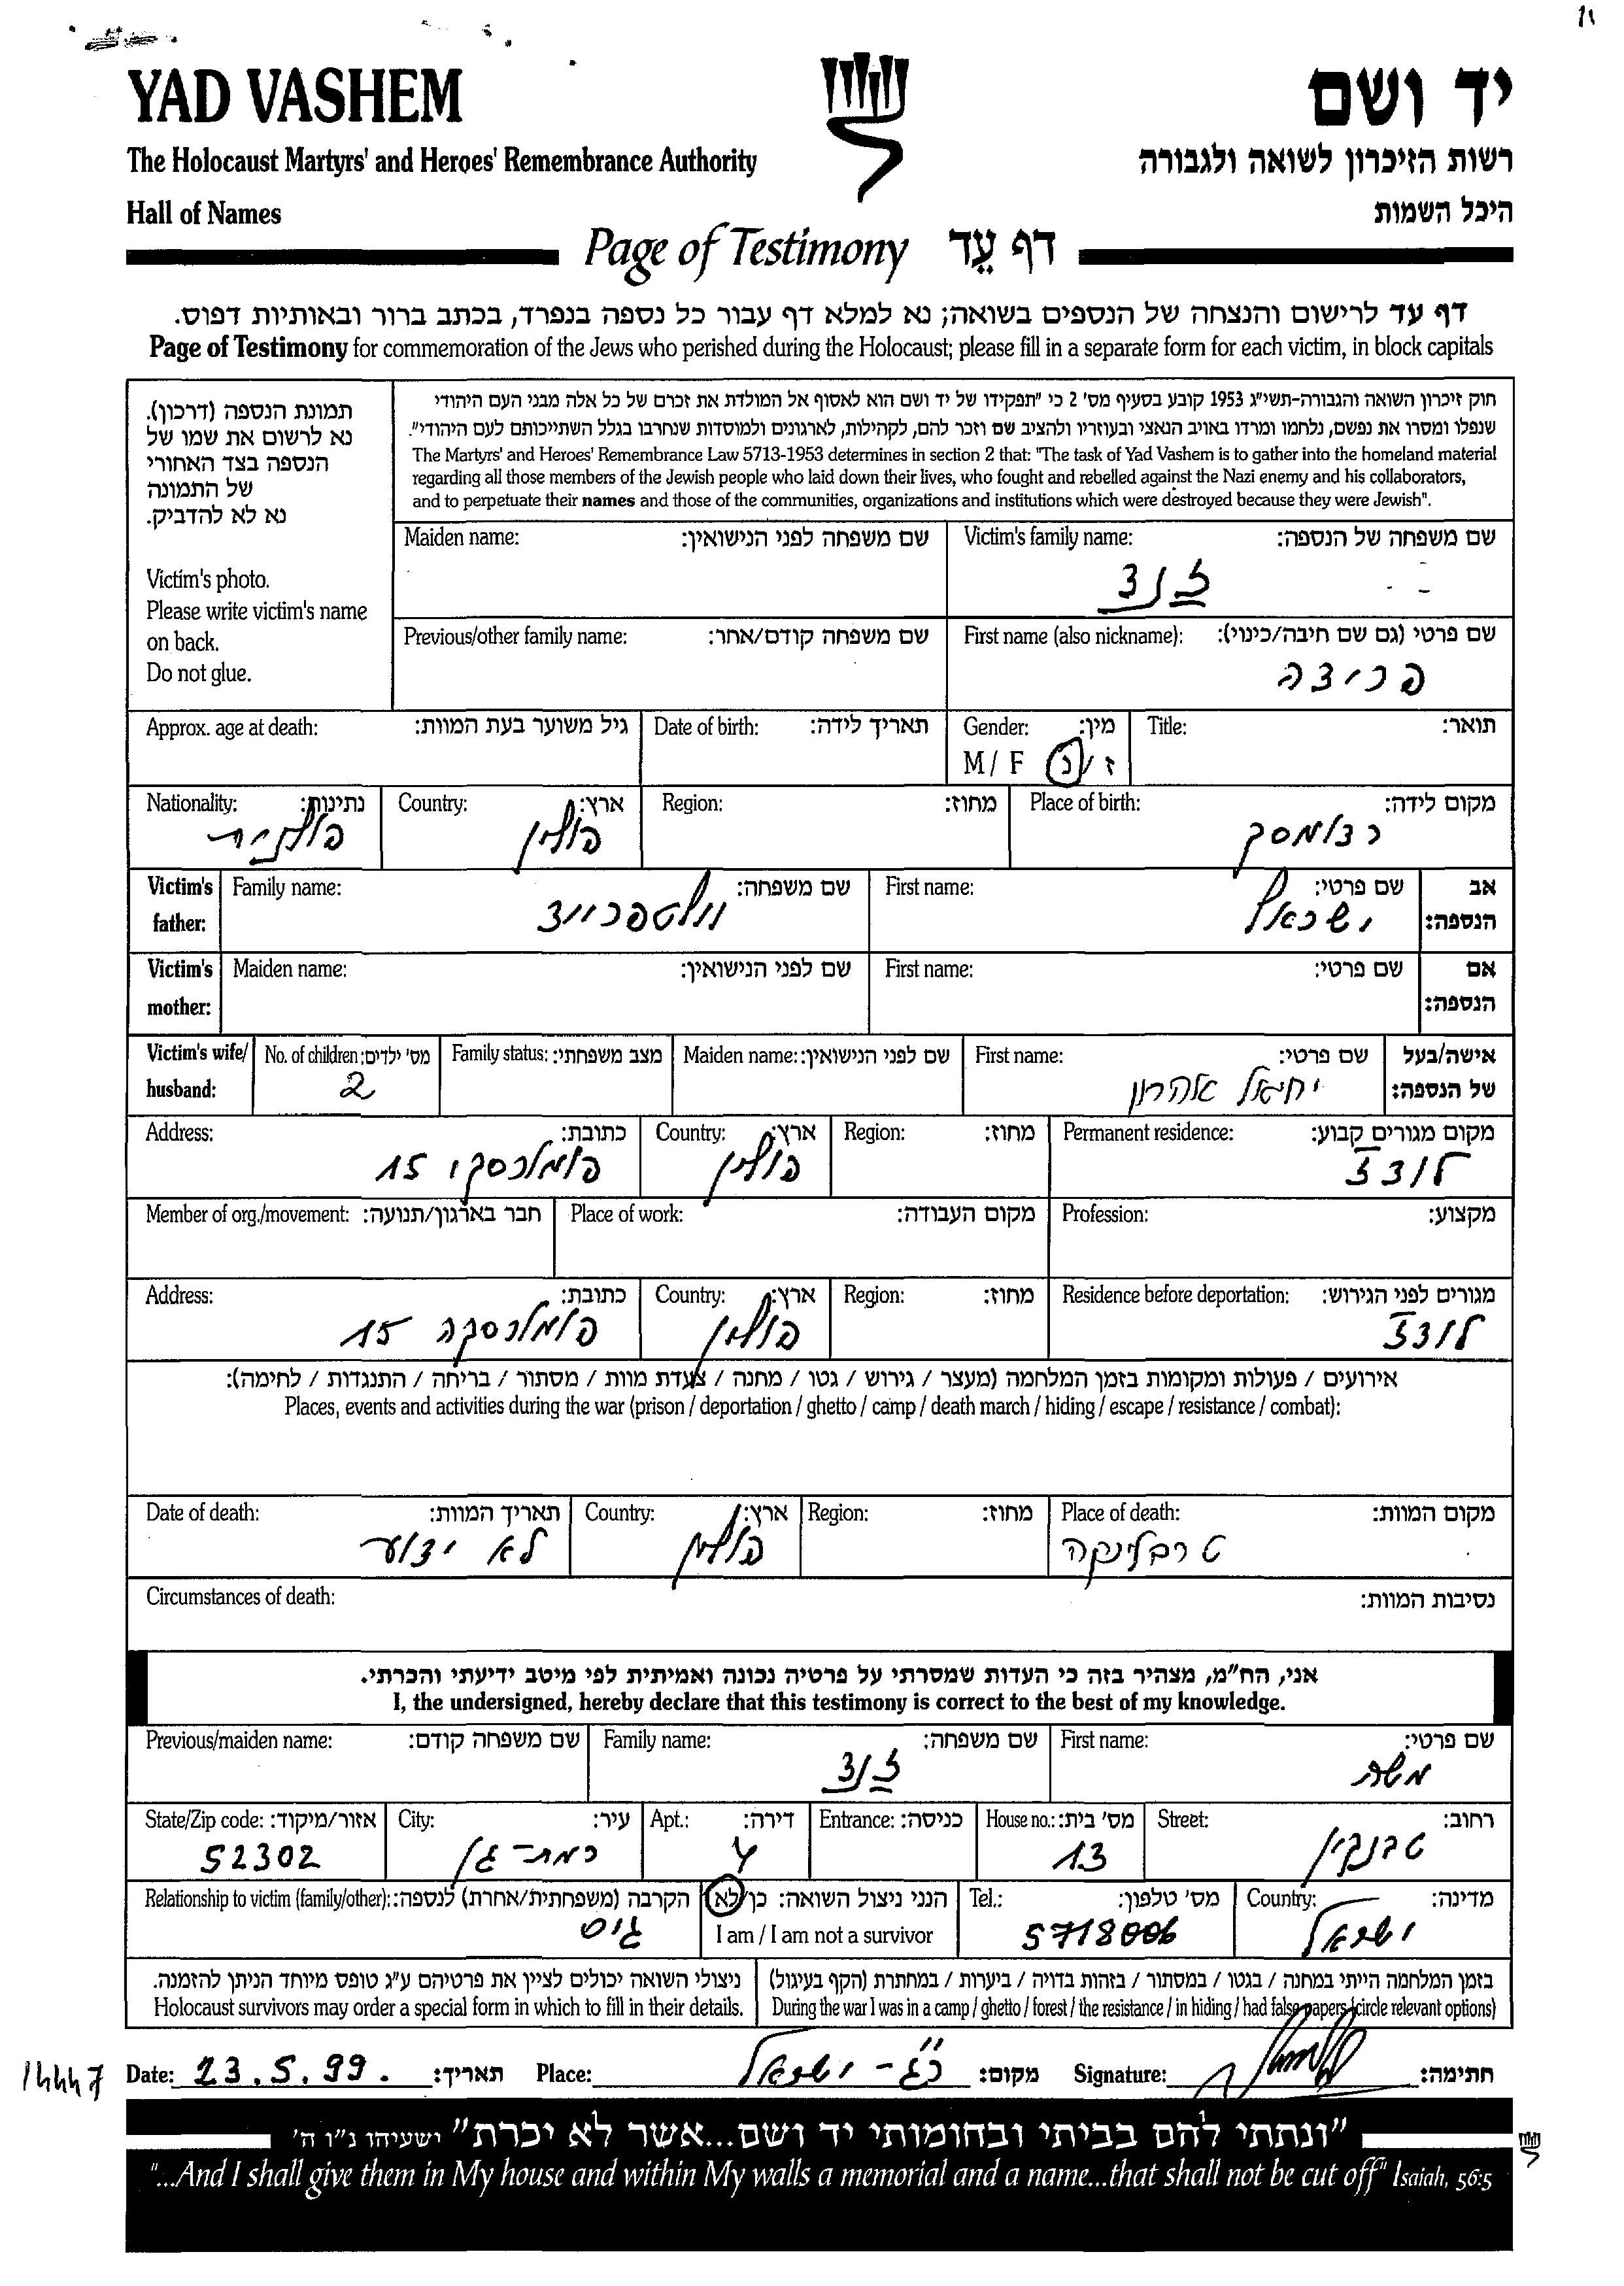 YAD VASHEM
יד ושם
The Holocaust Martyrs' and Heroes' Remembrance Authority
רשות הזיכרון לשואה ולגבורה
Hall of Names
היכל השמות
Page of Testimony דף עֵד
דף עד לרישום והנצחה של הנספים בשואה; נא למלא דף עבור כל נספה בנפרד, בכתב ברור ובאותיות דפוס.
Page of Testimony for commemoration of the Jews who perished during the Holocaust; please fill in a separate form for each victim, in block capitals
תמונת הנספה (דרכון).
נא לרשום את שמו של
הנספה בצד האחורי
של התמונה
נא לא להדביק.
Victim's photo.
Please write victim's name
on back.
Do not glue.
חוק זיכרון השואה והגבורה-תשי"ג 1953 קובע בסעיף מס' 2 כי "תפקידו של יד ושם הוא לאסוף אל המולדת את זכרם של כל אלה מבני העם היהודי
שנפלו ומסרו את נפשם, נלחמו ומרדו באויב הנאצי ובעוזריו ולהציב שם וזכר להם, לקהילות, לארגונים ולמוסדות שנחרבו בגלל השתייכותם לעם היהודי".
The Martyrs' and Heroes' Remembrance Law 5713-1953 determines in section 2 that: "The task of Yad Vashem is to gather into the homeland material
regarding all those members of the Jewish people who laid down their lives, who fought and rebelled against the Nazi enemy and his collaborators,
and to perpetuate their names and those of the communities, organizations and institutions which were destroyed because they were Jewish".
Maiden name: שם משפחה לפני הנישואין:
Victim's family name: שם משפחה של הנספה:
Previous/other family name: שם משפחה קודם/אחר:
First name (also nickname): שם פרטי (גם שם חיבה/כינוי):
Approx. age at death: גיל משוער בעת המוות:
Date of birth: תאריך לידה:
Gender: מין:
M / F ז / נ
Title: תואר:
Nationality: נתינות:
פולנית
Country: ארץ:
פולין
Region: מחוז:
Place of birth: מקום לידה:
רדומסק
Victim's father: Family name: שם משפחה:
First name: שם פרטי:
ישראל
אב הנספה:
Victim's mother: Maiden name: שם לפני הנישואין:
First name: שם פרטי:
אם הנספה:
Victim's wife/ husband: No. of children: מס' ילדים:
2
Family status: מצב משפחתי:
Maiden name: שם לפני הנישואין:
First name: שם פרטי:
יחיאל אהרון
אישה/בעל של הנספה:
Address: כתובת:
15
Country: ארץ:
פולין
Region: מחוז:
Permanent residence: מקום מגורים קבוע:
לודז
Member of org./movement: חבר בארגון/תנועה:
Place of work: מקום העבודה:
Profession: מקצוע:
Address: כתובת:
15
Country: ארץ:
פולין
Region: מחוז:
Residence before deportation: מגורים לפני הגירוש:
לודז
אירועים / פעולות ומקומות בזמן המלחמה (מעצר / גירוש / גטו / מחנה / צעדת מוות / מסתור / בריחה / התנגדות / לחימה):
Places, events and activities during the war (prison / deportation / ghetto / camp / death march / hiding / escape / resistance / combat):
Date of death: תאריך המוות:
לא ידוע
Country: ארץ:
פולין
Region: מחוז:
Place of death: מקום המוות:
טרבלינקה
Circumstances of death: נסיבות המוות:
אני, הח"מ, מצהיר בזה כי העדות שמסרתי על פרטיה נכונה ואמיתית לפי מיטב ידיעתי והכרתי.
I, the undersigned, hereby declare that this testimony is correct to the best of my knowledge.
Previous/maiden name: שם משפחה קודם:
Family name: שם משפחה:
First name: שם פרטי:
משה
State/Zip code: אזור/מיקוד:
52302
City: עיר:
רמת-גן
Apt.: דירה:
4
Entrance: כניסה:
House no.: מס' בית:
13
Street: רחוב:
טבנקין
Relationship to victim (family/other): הקרבה (משפחתית/אחרת) לנספה:
גיס
הנני ניצול השואה: כן/לא
I am / I am not a survivor
Tel.: מס' טלפון:
5718006
Country: מדינה:
ישראל
ניצולי השואה יכולים לציין את פרטיהם ע"ג טופס מיוחד הניתן להזמנה.
Holocaust survivors may order a special form in which to fill in their details.
בזמן המלחמה הייתי במחנה / בגטו / במסתור / בזהות בדויה / ביערות / במחתרת (הקף בעיגול)
During the war I was in a camp / ghetto / forest / the resistance / in hiding / had false papers (circle relevant options)
Date: 23.5.99. תאריך:
Place: ר"ג - ישראל מקום:
Signature: חתימה:
"ונתתי להם בביתי ובחומותי יד ושם...אשר לא יכרת" ישעיהו נ"ו ה'
"...And I shall give them in My house and within My walls a memorial and a name...that shall not be cut off" Isaiah, 56:5